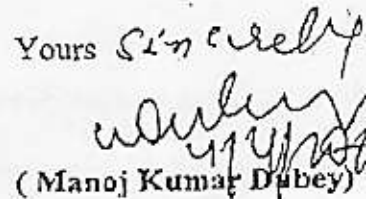 Yours Sincerely
(Manoj Kumar Dubey)